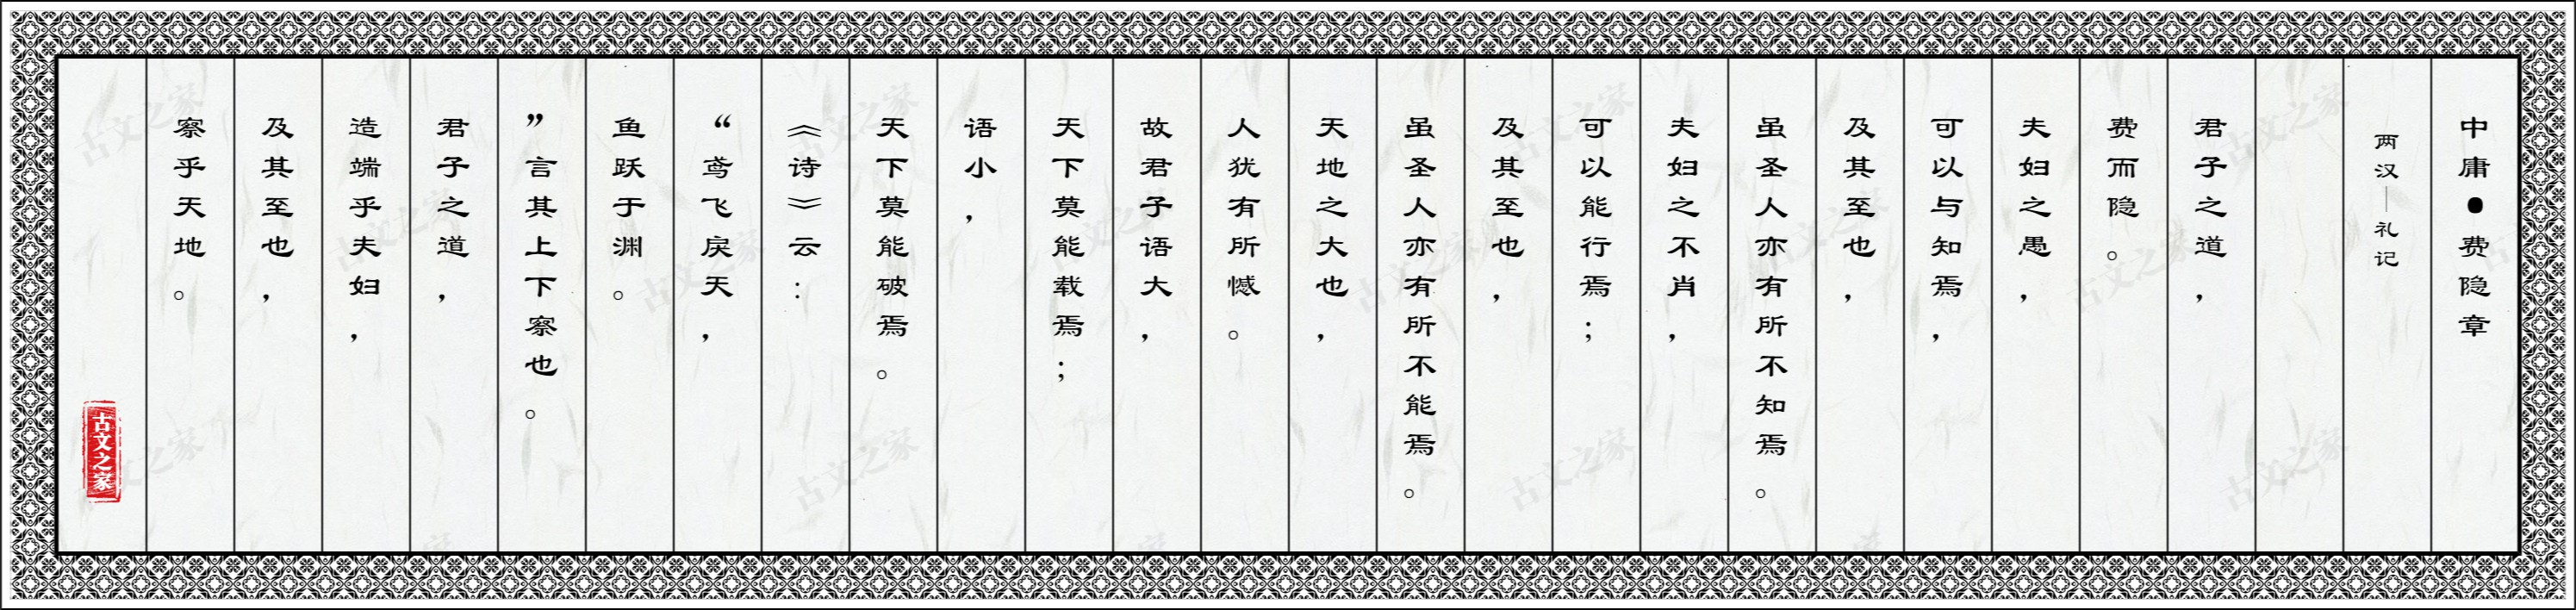 中庸●费隐章
两汉—礼记
君子之道，
费而隐。
夫妇之愚，
可以与知焉，
及其至也，
虽圣人亦有所不知焉。
夫妇之不肖，
可以能行焉；
及其至也，
虽圣人亦有所不能焉。
天地之大也，
人犹有所憾。
故君子语大，
天下莫能载焉；
语小，
天下莫能破焉。
《诗》云：
“鸢飞戾天，
鱼跃于渊。
”言其上下察也。
君子之道，
造端乎夫妇，
及其至也，
察乎天地。
古文之家